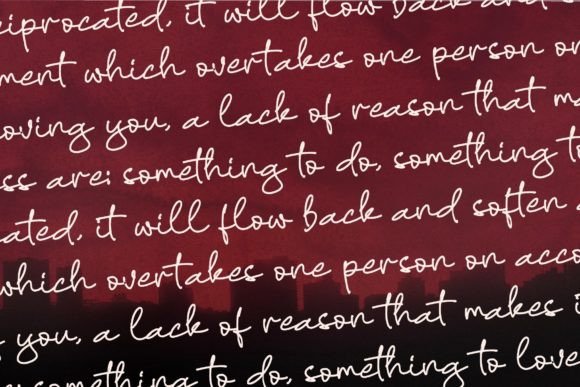 ciprocated, it will flow back and
ment which overtakes one person on
oving you, a lack of reason that ma
ss are; something to do, something to
cated, it will flow back and soften
which overtakes one person on acco
you, a lack of reason that makes i
something to do, something to love